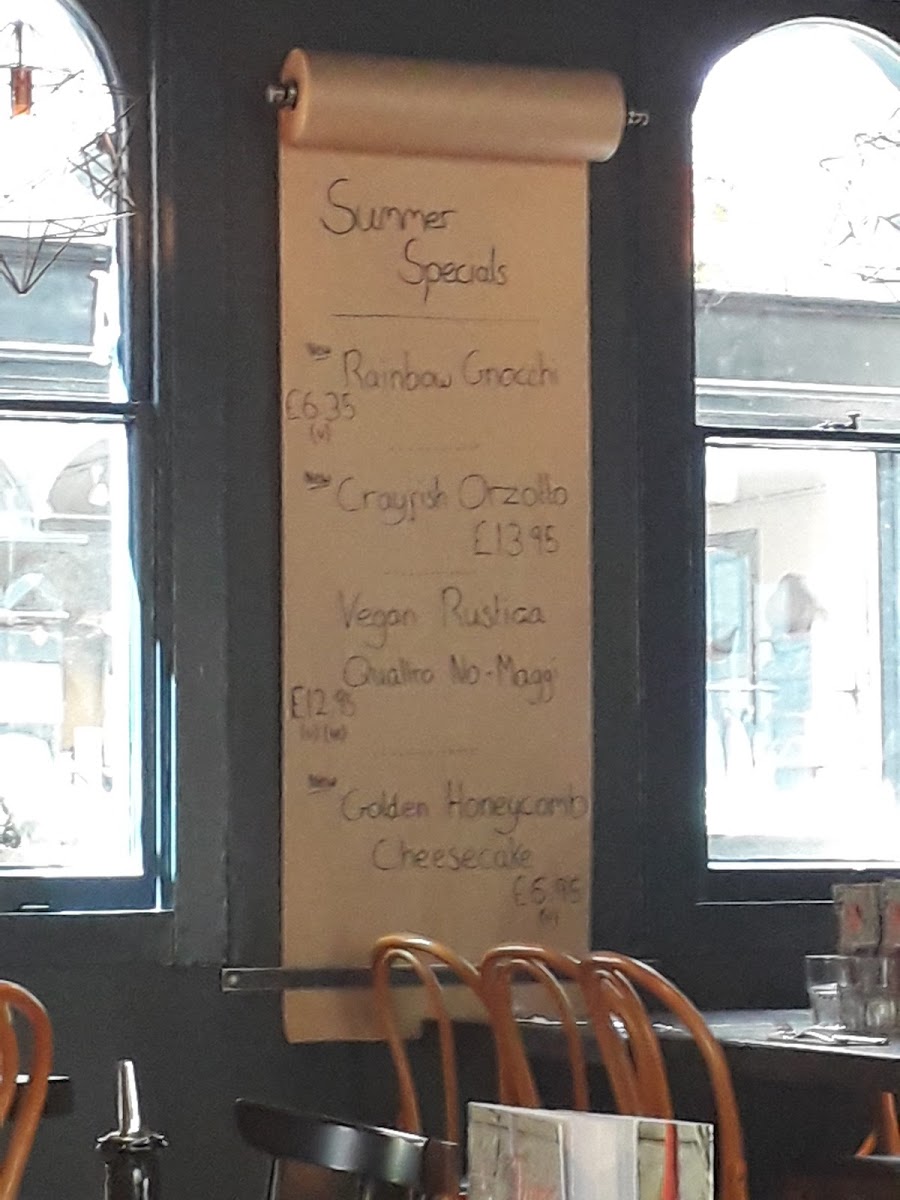 Summer
Specials
New Rainbow Gnocchi
£6.35
(v)
New Crayfish Orzotto
£13.95
Vegan Rustica
Quattro No-Maggi
£12.95
(v) (ve)
New Golden Honeycomb
Cheesecake
£6.95
(v)